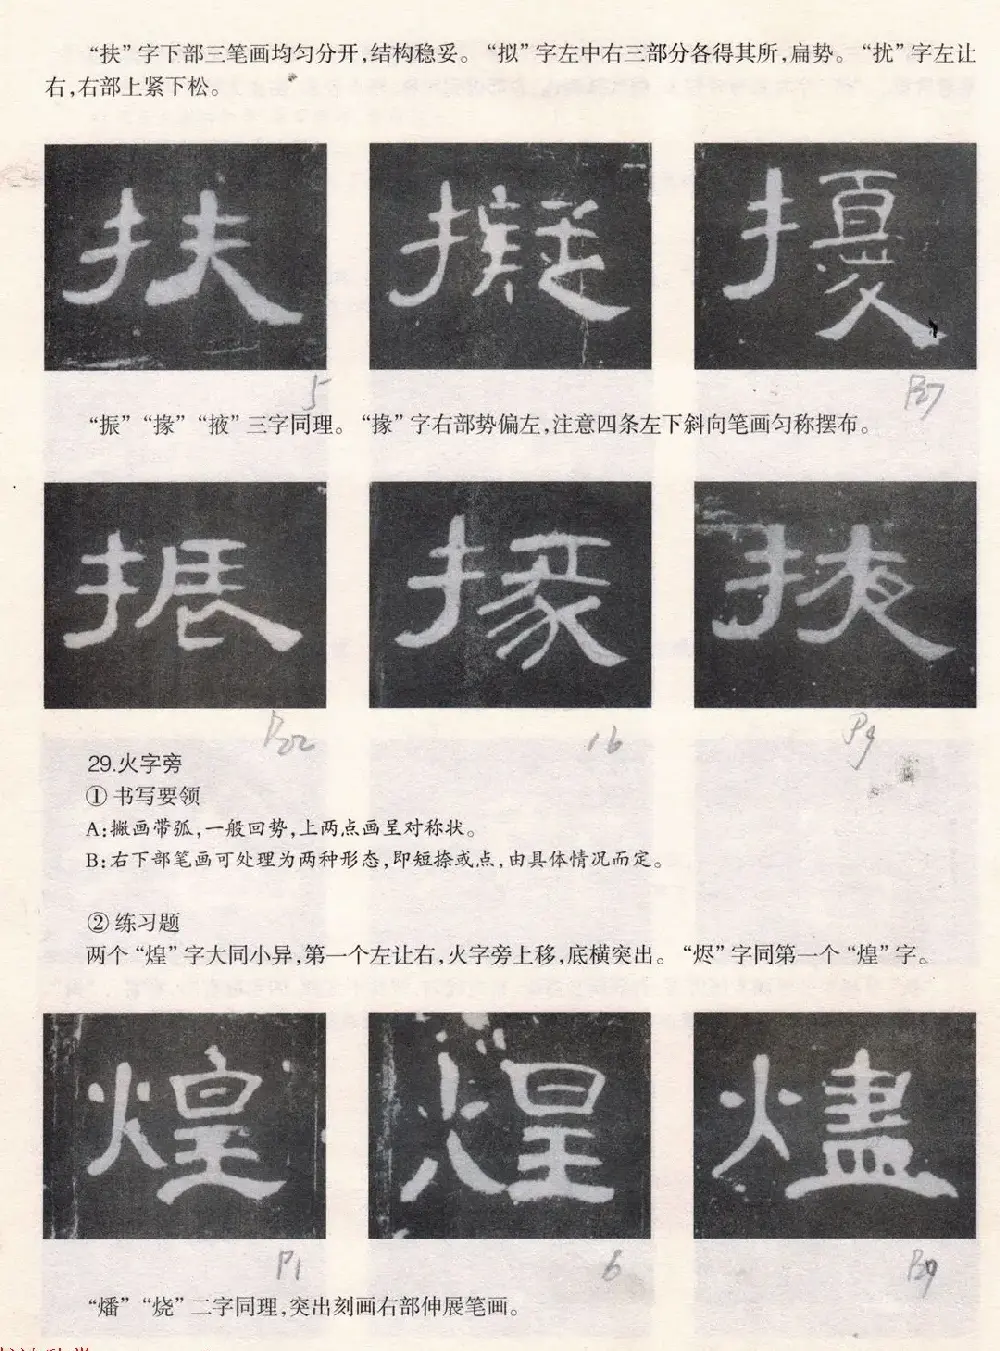 “扶”字下部三笔画均匀分开,结构稳妥。“拟”字左中右三部分各得其所,扁势。“扰”字左让
右,右部上紧下松。
扶 擬 擾
5 P27
“振”“掾”“掖”三字同理。“掾”字右部势偏左,注意四条左下斜向笔画匀称摆布。
振 掾 掖
P22 16 P9
29.火字旁
①书写要领
A:撇画带弧,一般回势,上两点画呈对称状。
B:右下部笔画可处理为两种形态,即短捺或点,由具体情况而定。
②练习题
两个“煌”字大同小异,第一个左让右,火字旁上移,底横突出。“烬”字同第一个“煌”字。
煌 煌 燼
P1 6
“燔”“烧”二字同理,突出刻画右部伸展笔画。